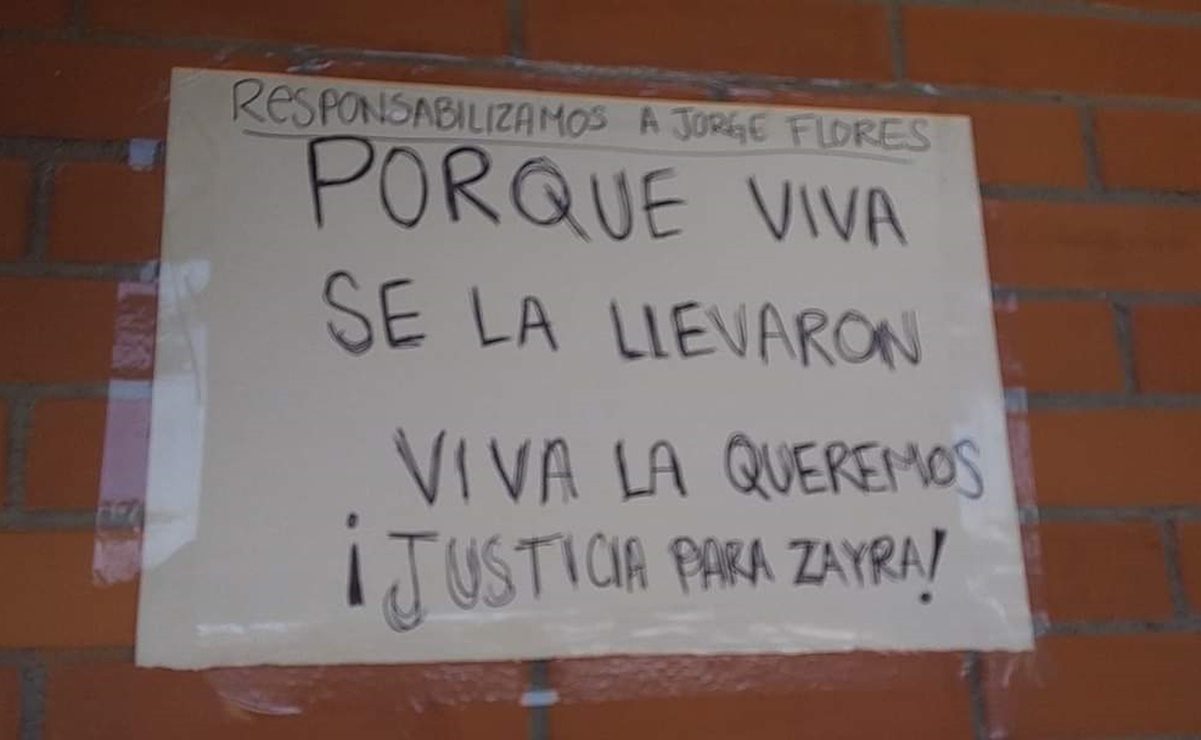 RESPONSABILIZAMOS A JORGE FLORES
PORQUE VIVA
SE LA LLEVARON
VIVA LA QUEREMOS
¡JUSTICIA PARA ZAYRA!